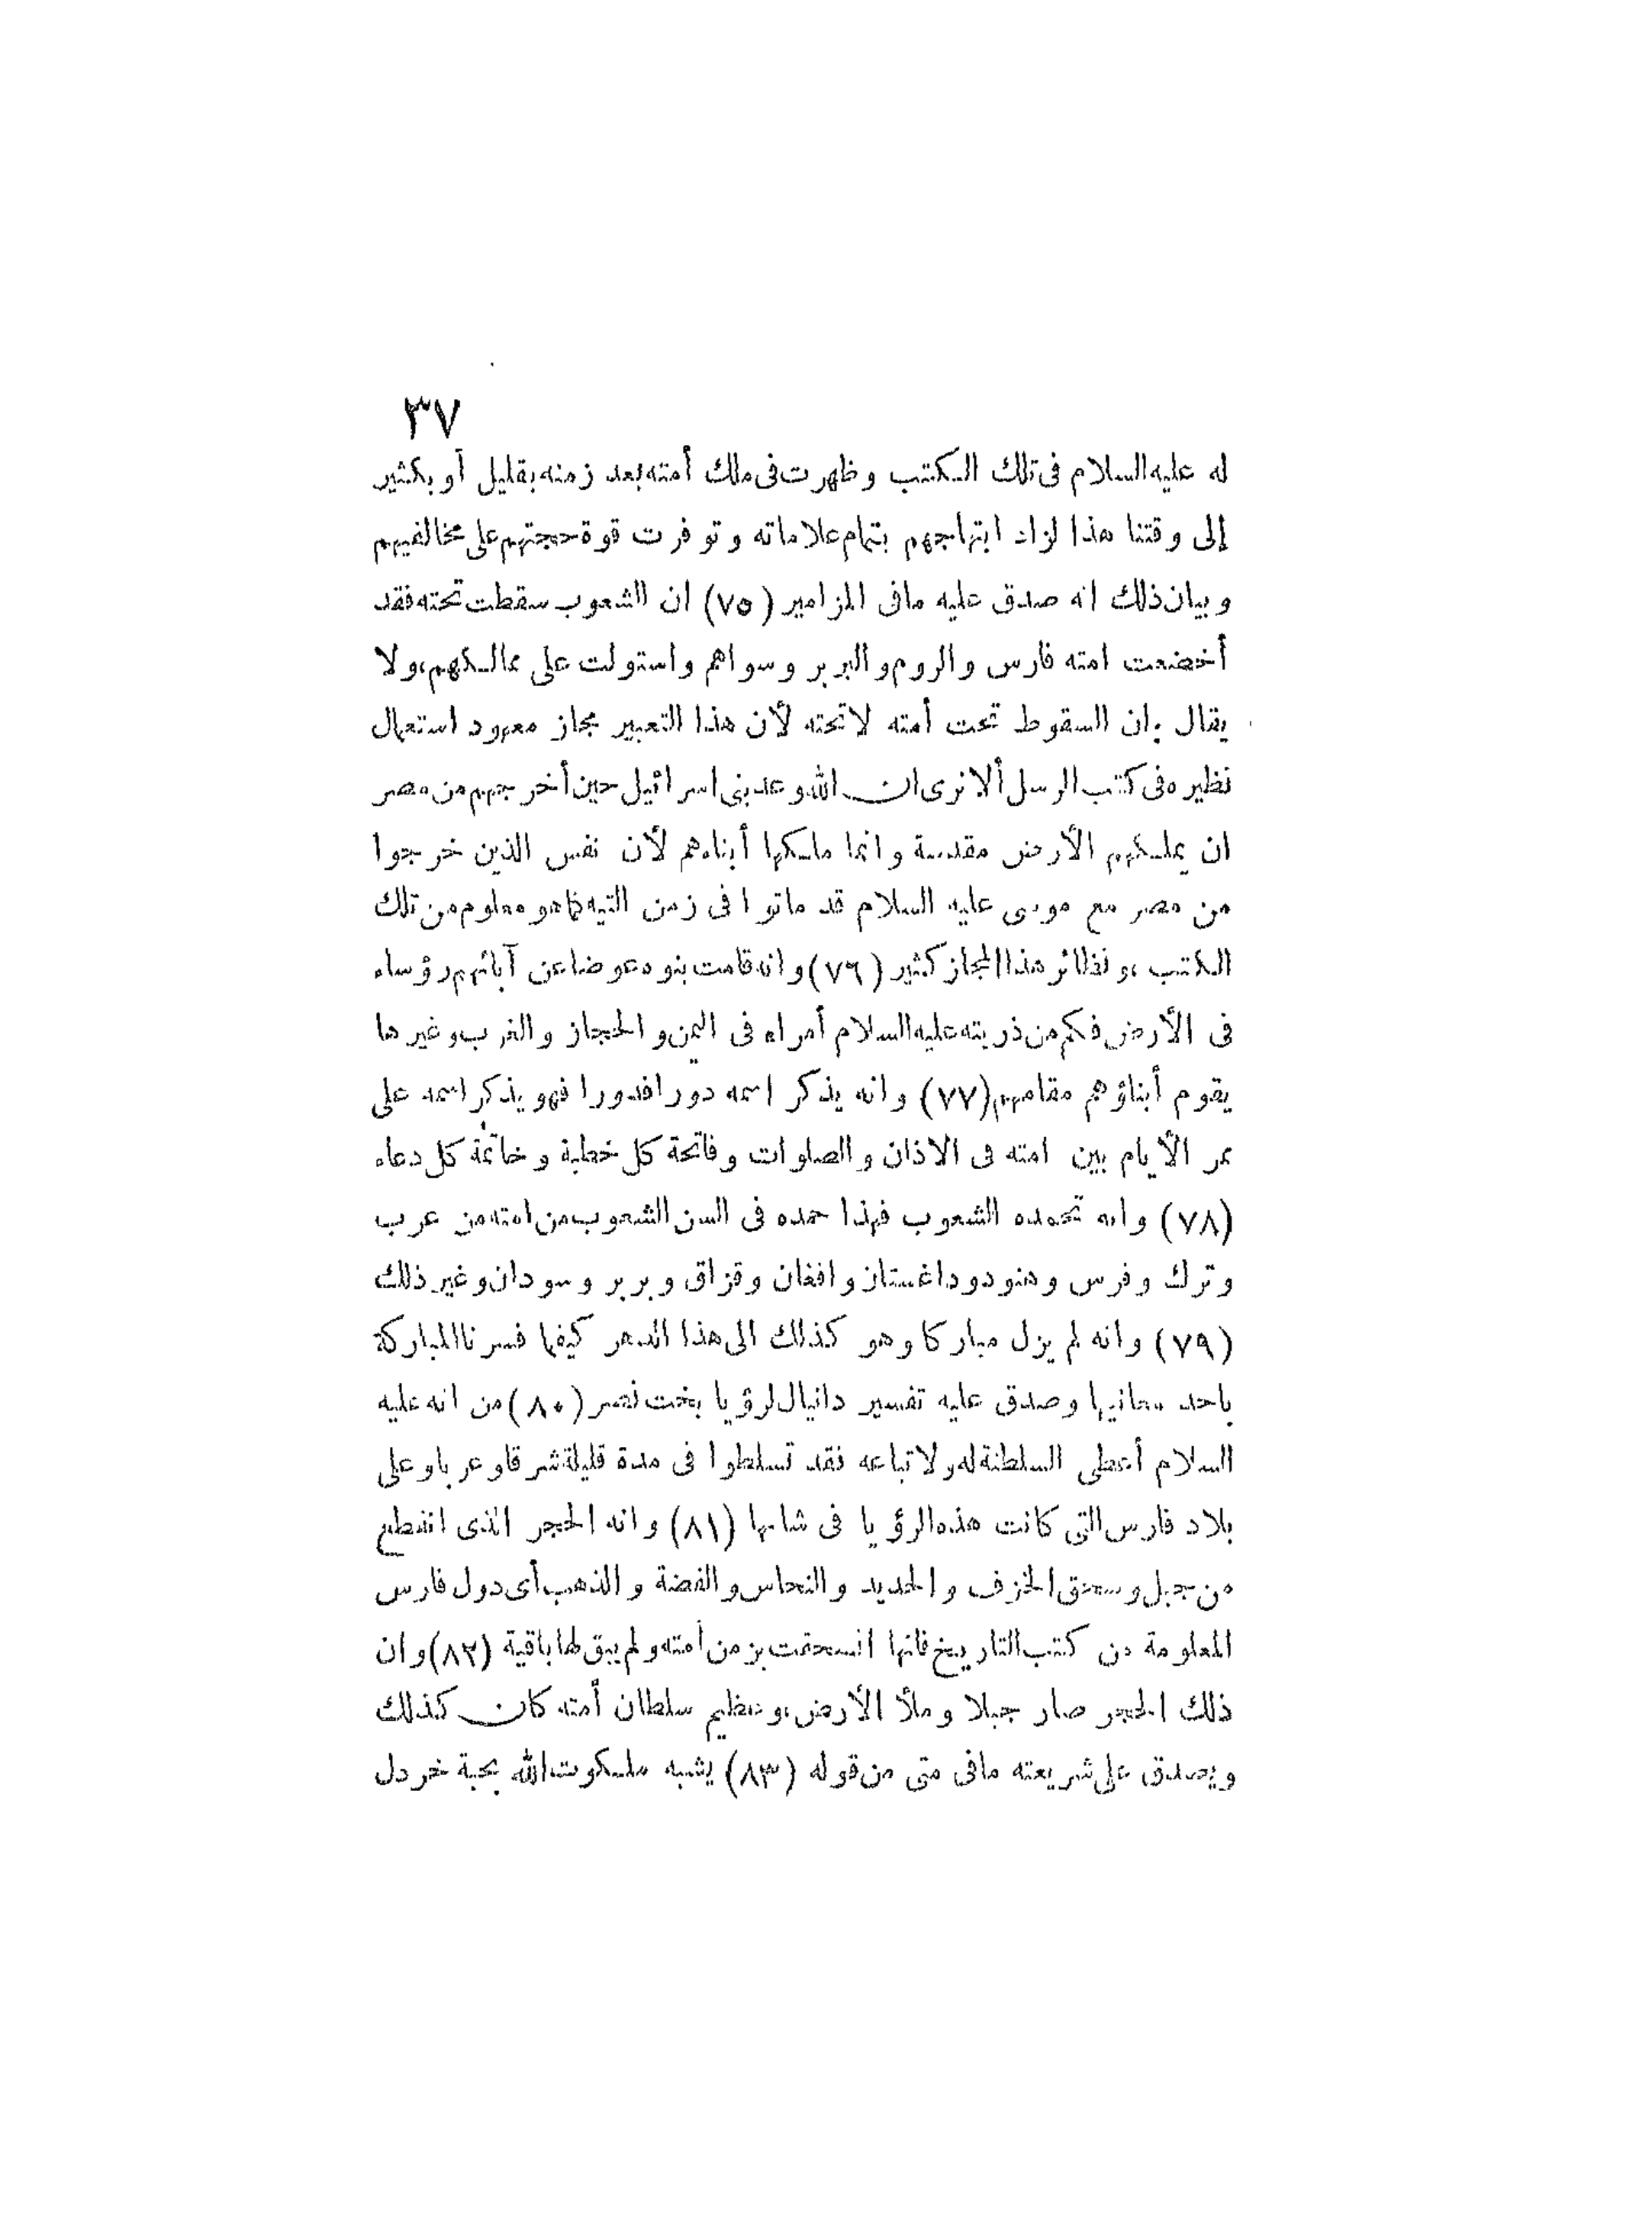 ٣٧
له عليه السلام فى تلك الكتب وظهرت فى ملك أمته بعد زمنه بقليل أو بكثير
إلى وقتنا هذا لزاد ابتهاجهم بتمام علاماته وتوفرت قوة حجتهم على مخالفيهم
وبيان ذلك انه صدق عليه مافى المزامير (٧٥) ان الشعوب سقطت تحته فقد
أخضعت امته فارس والروم والبربر وسواهم واستولت على ممالكهم، ولا
يقال ان السقوط تحت أمته لا تحته لأن هذا التعبير مجاز معهود استعمال
نظيره فى كتب الرسل ألا نرى ان الله وعد بنى اسرائيل حين أخرجهم من مصر
ان يملكهم الأرض مقدسة وانما ملكها أبناءهم لأن نفس الذين خرجوا
من مصر مع موسى عليه السلام قد ماتوا فى زمن التيه كما هو معلوم من تلك
الكتب، ونظائر هذا المجاز كثير (٧٦) وانه قامت بنوه عوضا عن آبائهم رؤساء
فى الأرض فكم من ذريته عليه السلام أمراء فى اليمن والحجاز والغرب وغيرها
يقوم أبناؤهم مقامهم (٧٧) وانه يذكر اسمه دورا فدورا فهو يذكر اسمه على
ممر الأيام بين امته فى الاذان والصلوات وفاتحة كل خطبة وخاتمة كل دعاء
(٧٨) وانه تحمده الشعوب فهذا حمده فى السن الشعوب من امته من عرب
وترك وفرس وهنود وداغستان وافغان وقزاق وبربر وسودان وغير ذلك
(٧٩) وانه لم يزل مباركا وهو كذلك الى هذا الدهر كيفما فسرنا المباركة
باحد معانيها وصدق عليه تفسير دانيال لرؤيا بخت نصر (٨٠) من انه عليه
السلام أعطى السلطنة له ولاتباعه فقد تسلطوا فى مدة قليلة شرقا وغربا وعلى
بلاد فارس التى كانت هذه الرؤيا فى شانها (٨١) وانه الحجر الذى انقطع
من جبل وسحق الخزف والحديد والنحاس والفضة والذهب أى دول فارس
المعلومة من كتب التاريخ فانها انسحقت بزمن أمته ولم يبق لها باقية (٨٢) وان
ذلك الحجر صار جبلا وملأ الأرض، وعظيم سلطان أمته كان كذلك
ويصدق على شريعته مافى متى من قوله (٨٣) يشبه ملكوت الله بحبة خردل